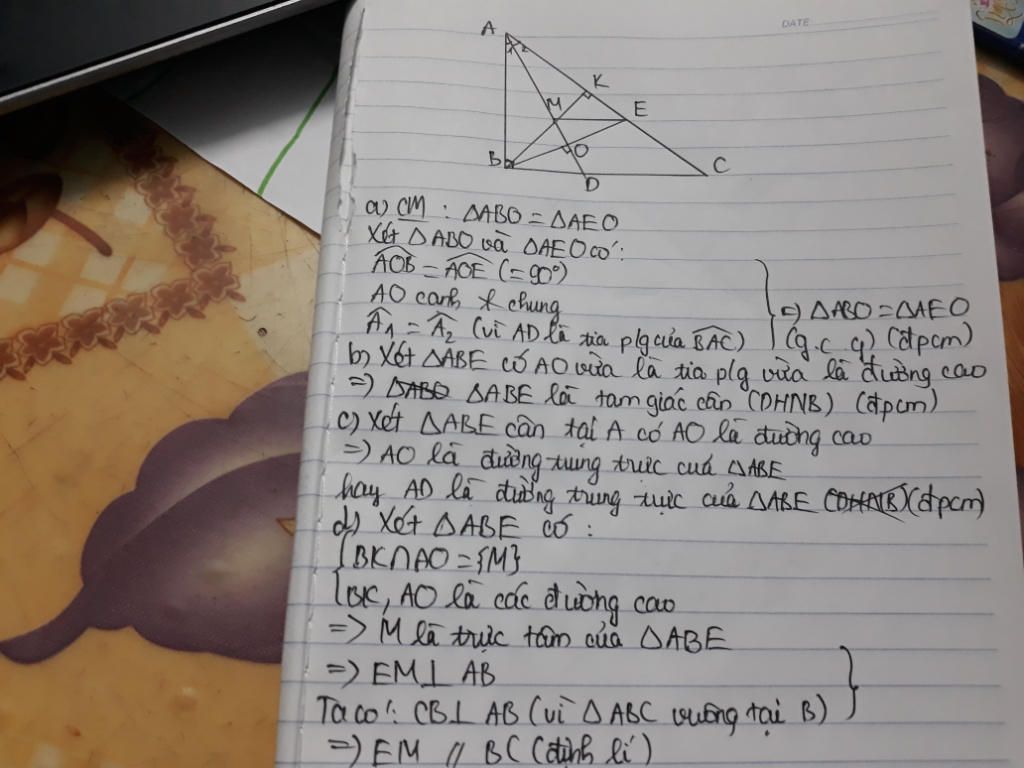 DATE
A
1 2
K
M
E
O
B
D
C
a) CM : ΔABO = ΔAEO
Xét ΔABO và ΔAEO có:
AOB = AOE (= 90°)
AO cạnh chung
A1 = A2 (vì AD là tia p/g của BAC)
=> ΔABO = ΔAEO
(g.c.g) (đpcm)
b) Xét ΔABE có AO vừa là tia p/g vừa là đường cao
=> ΔABO ΔABE là tam giác cân (DHNB) (đpcm)
c) Xét ΔABE cân tại A có AO là đường cao
=> AO là đường trung trực của ΔABE
hay AD là đường trung trực của ΔABE (DHNB) (đpcm)
d) Xét ΔABE có :
{BK∩AO = {M}
{BK, AO là các đường cao
=> M là trực tâm của ΔABE
=> EM⊥ AB
Ta có: CB⊥ AB (vì ΔABC vuông tại B)
=> EM // BC (định lí)